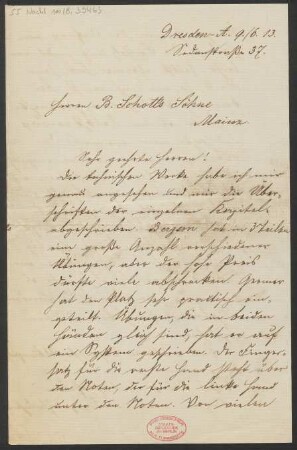 Dresden-A. 9/6. 13.
Sedanstraße 37.
Herren B. Schott's Söhne
Mainz
Sehr geehrte Herren!
Die technischen Werke habe ich mir
genau angesehen und mir die Über-
schriften der einzelnen Kapitel
abgeschrieben. hat in 3 Teilen
eine große Anzahl verschiedener
Übungen, aber der hohe Preis
dürfte viele abschrecken. Germer
hat den Platz sehr praktisch ein-
geteilt. Übungen, die in beiden
Händen gleich sind, hat er auf
ein System geschrieben. Der Finger-
satz für die rechte Hand steht über
den Noten, der für die linke Hand
unter den Noten. Von vielen